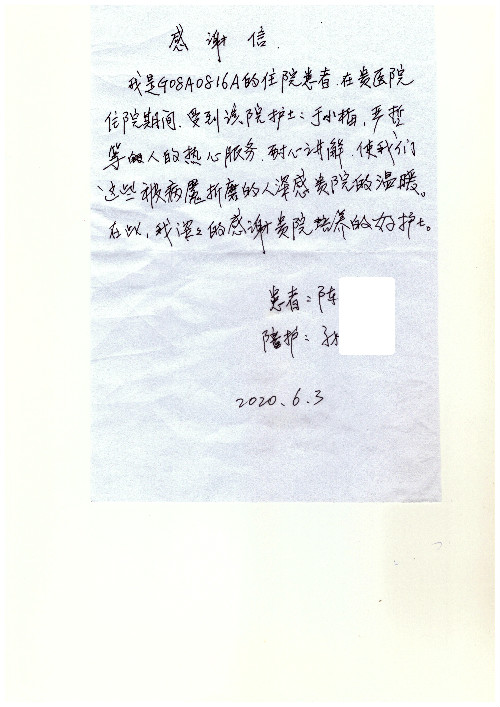 感 谢 信.
我是G08A0816A的住院患者.在贵医院
住院期间.受到该院护士:于小梅,严哲
等的人的热心服务.耐心讲解.使我们
这些被病魔折磨的人深感贵院的温暖。
在此,我深深的感谢贵院培养的好护士。
患者:陈
陪护:孙
2020.6.3